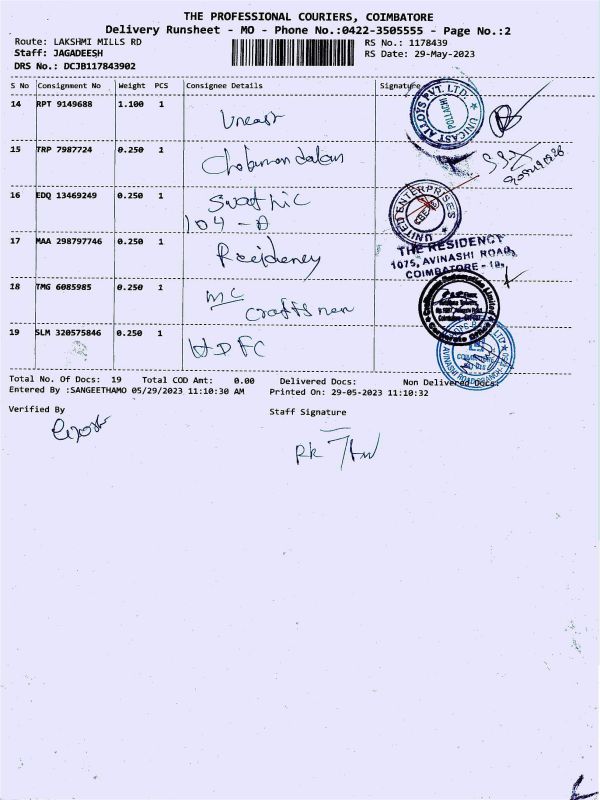 THE PROFESSIONAL COURIERS, COIMBATORE
Delivery Runsheet - MO - Phone No.:0422-3505555 - Page No.:2
Route: LAKSHMI MILLS RD
Staff: JAGADEESH
DRS No.: DCJB117843902
RS No.: 1178439
RS Date: 29-May-2023
S No Consignment No Weight PCS Consignee Details Signature
14 RPT 9149688 1.100 1
UNICAST ALLOYS PVT. LTD. POLLACHI
15 TRP 7987724 0.250 1
16 EDQ 13469249 0.250 1
104 - A
UNITED ENTERPRISES CBE
17 MAA 298797746 0.250 1 Residency
THE RESIDENCY
1075, AVINASHI ROAD,
COIMBATORE - 18.
18 TMG 6085985 0.250 1 MC
Craftsman
Corporate Office
19 SLM 320575846 0.250 1 HDFC
Total No. Of Docs: 19 Total COD Amt: 0.00 Delivered Docs: Non Delivered Docs:
Entered By :SANGEETHAMO 05/29/2023 11:10:30 AM Printed On: 29-05-2023 11:10:32
Verified By Staff Signature